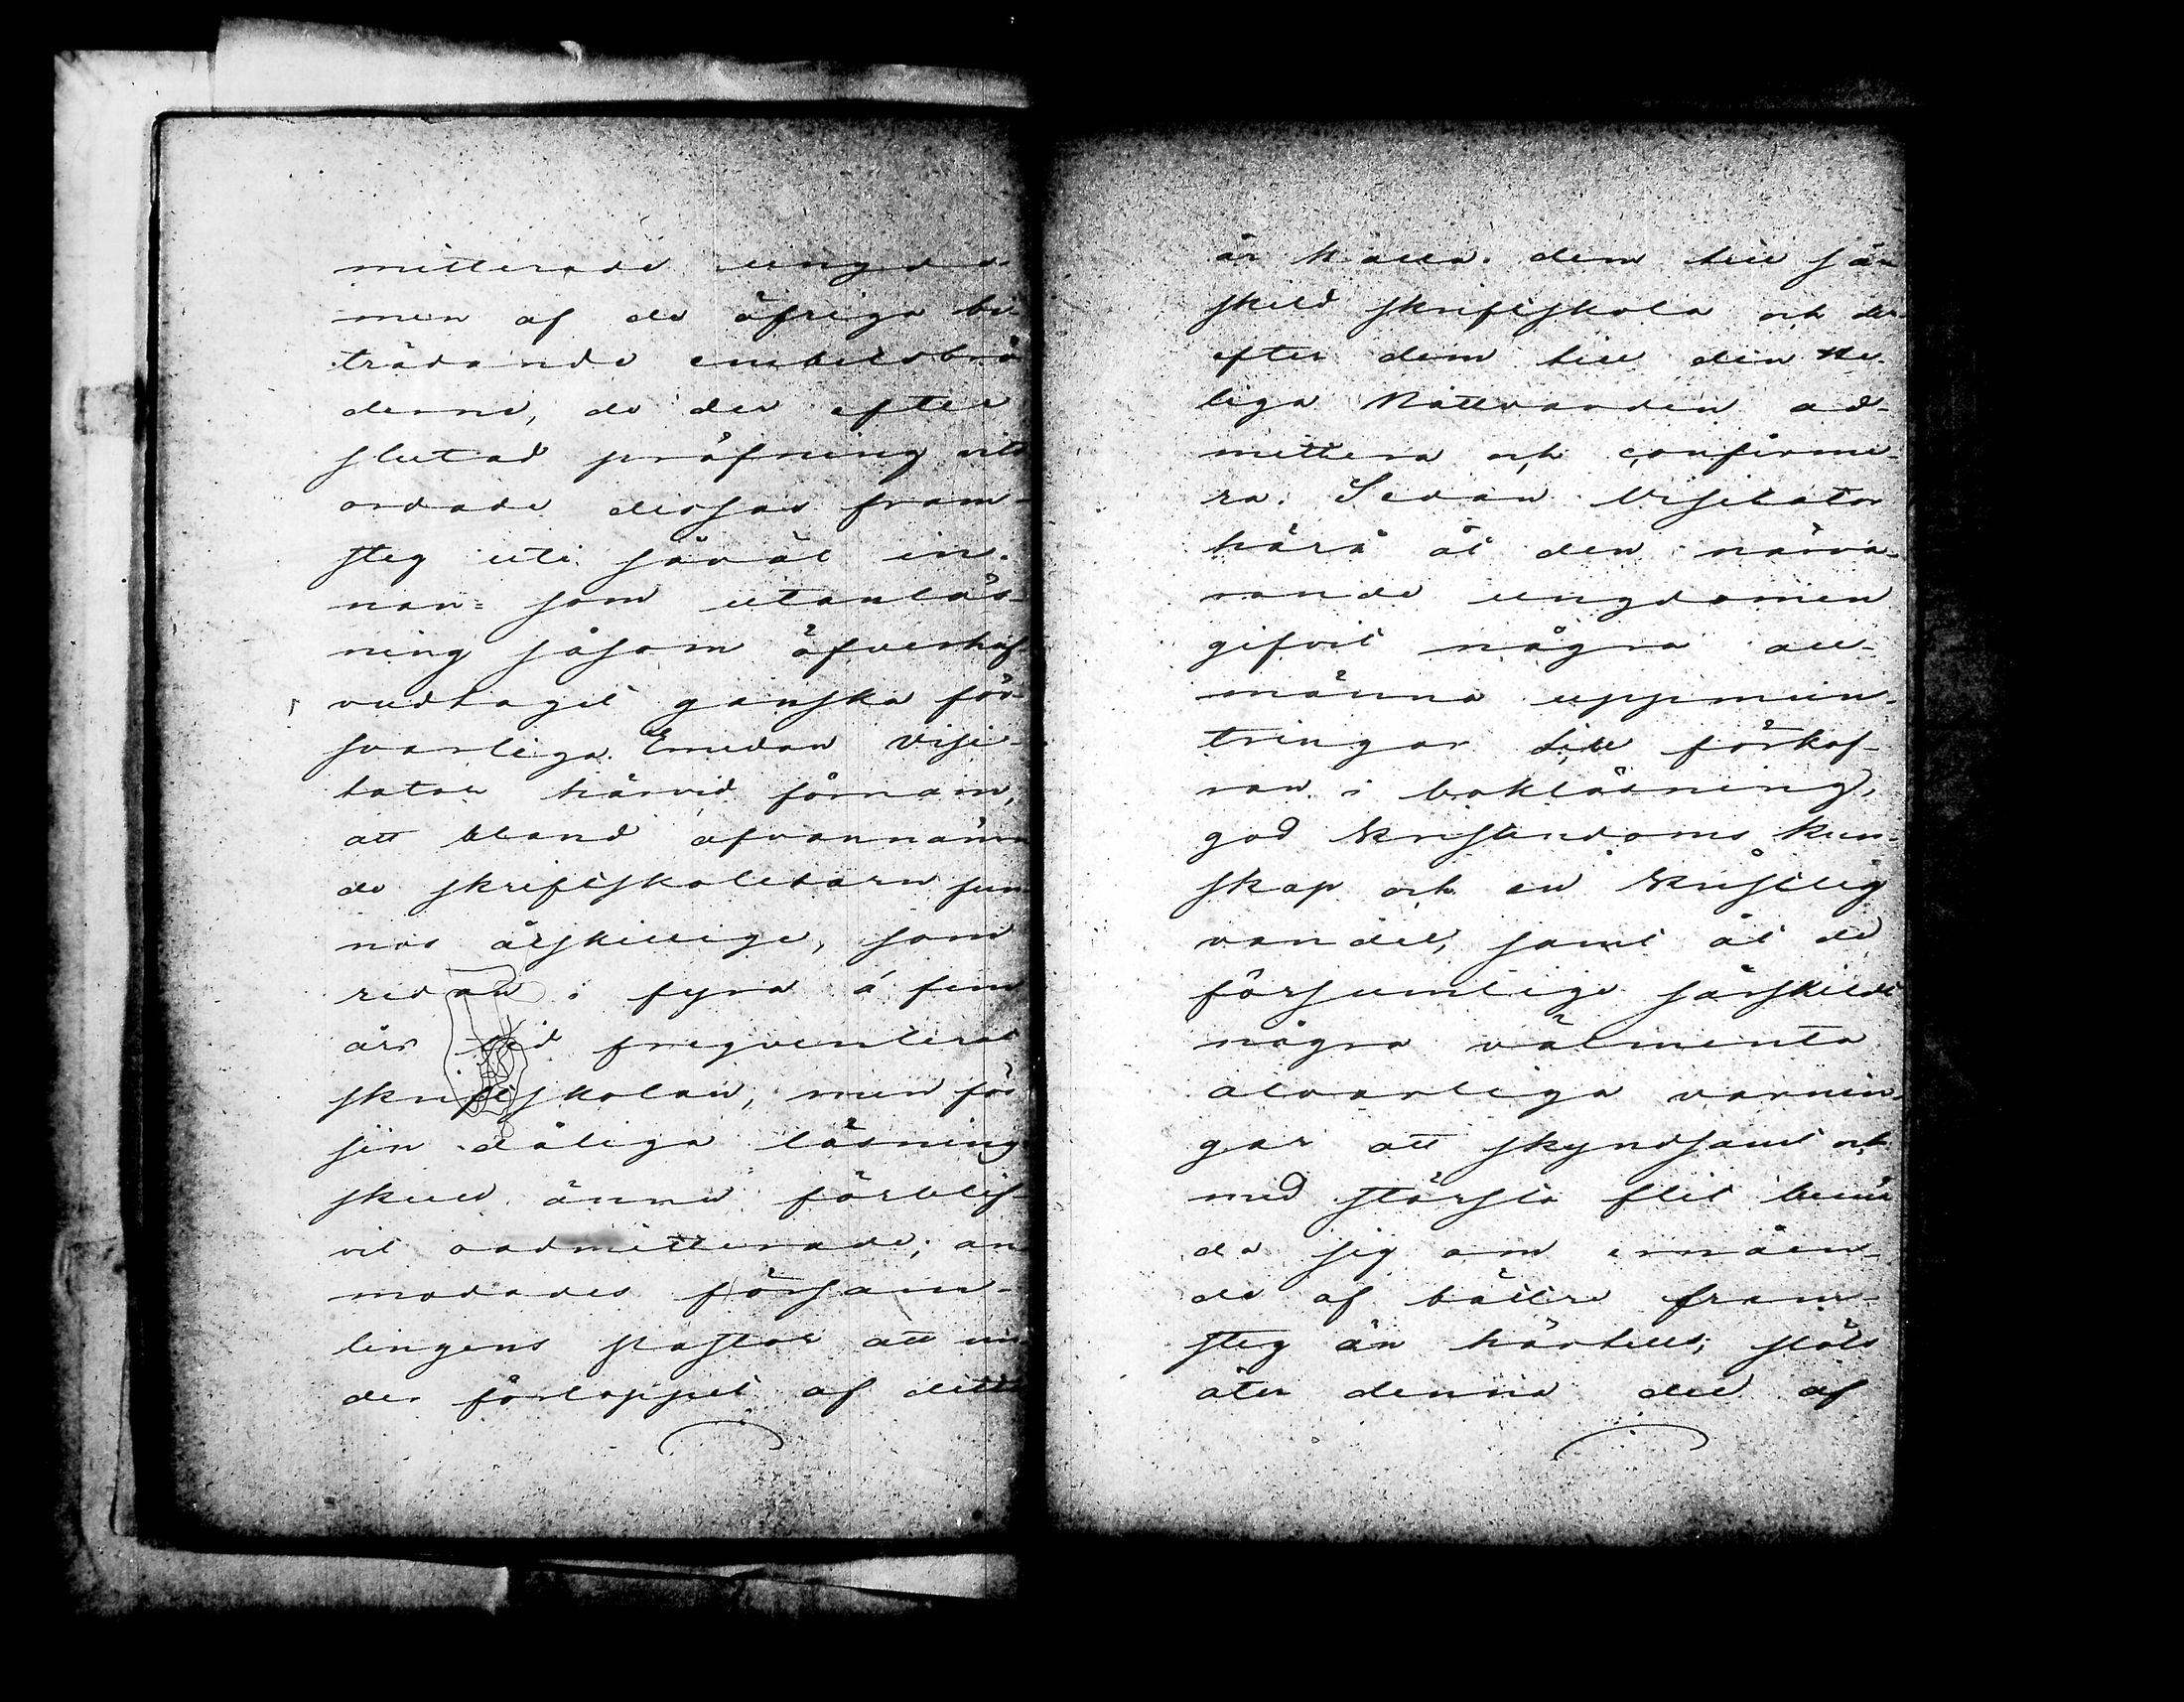 mitterade ungdo-
men af de öfriga bi-
trädande embetsbrö
derne, de der efter
slutad pröfning vits
ordade dessas fram-
steg uti såväl in-
nan= som utanläs-
ning såsom öfverhuf
vudtaget ganska för-
svarliga. Emedan Visi-
tator härvid förnam,
att bland ofvannämn
de skriftskolebarn fun
nos åtskillige, som
redan i fyra á fem
års tid freqventerat
skriftskolan, men för
sin dåliga läsning
skuld ännu förblif-
vit oadmitterade; an
modades försam-
lingens Pastor att un
der förloppet af detta
år kalla dem till sär
skild skriftskola och der
efter dem till den He-
liga Nattvarden ad-
mittera och confirme-
ra. Sedan Visitator
härå åt den närva-
rande ungdomen
gifvit några all-
männa uppmun-
tringar till förkof-
ran i bokläsning,
god Kristendoms kun-
skap och en Kristlig
vandel, samt åt de
försumlige särskildt
några välmenta
alvarliga varnin-
gar att skyndsamt och
med största flit bemö
da sig om ernåen-
de af bättre fram-
steg än härtills; slöts
åter denna del af